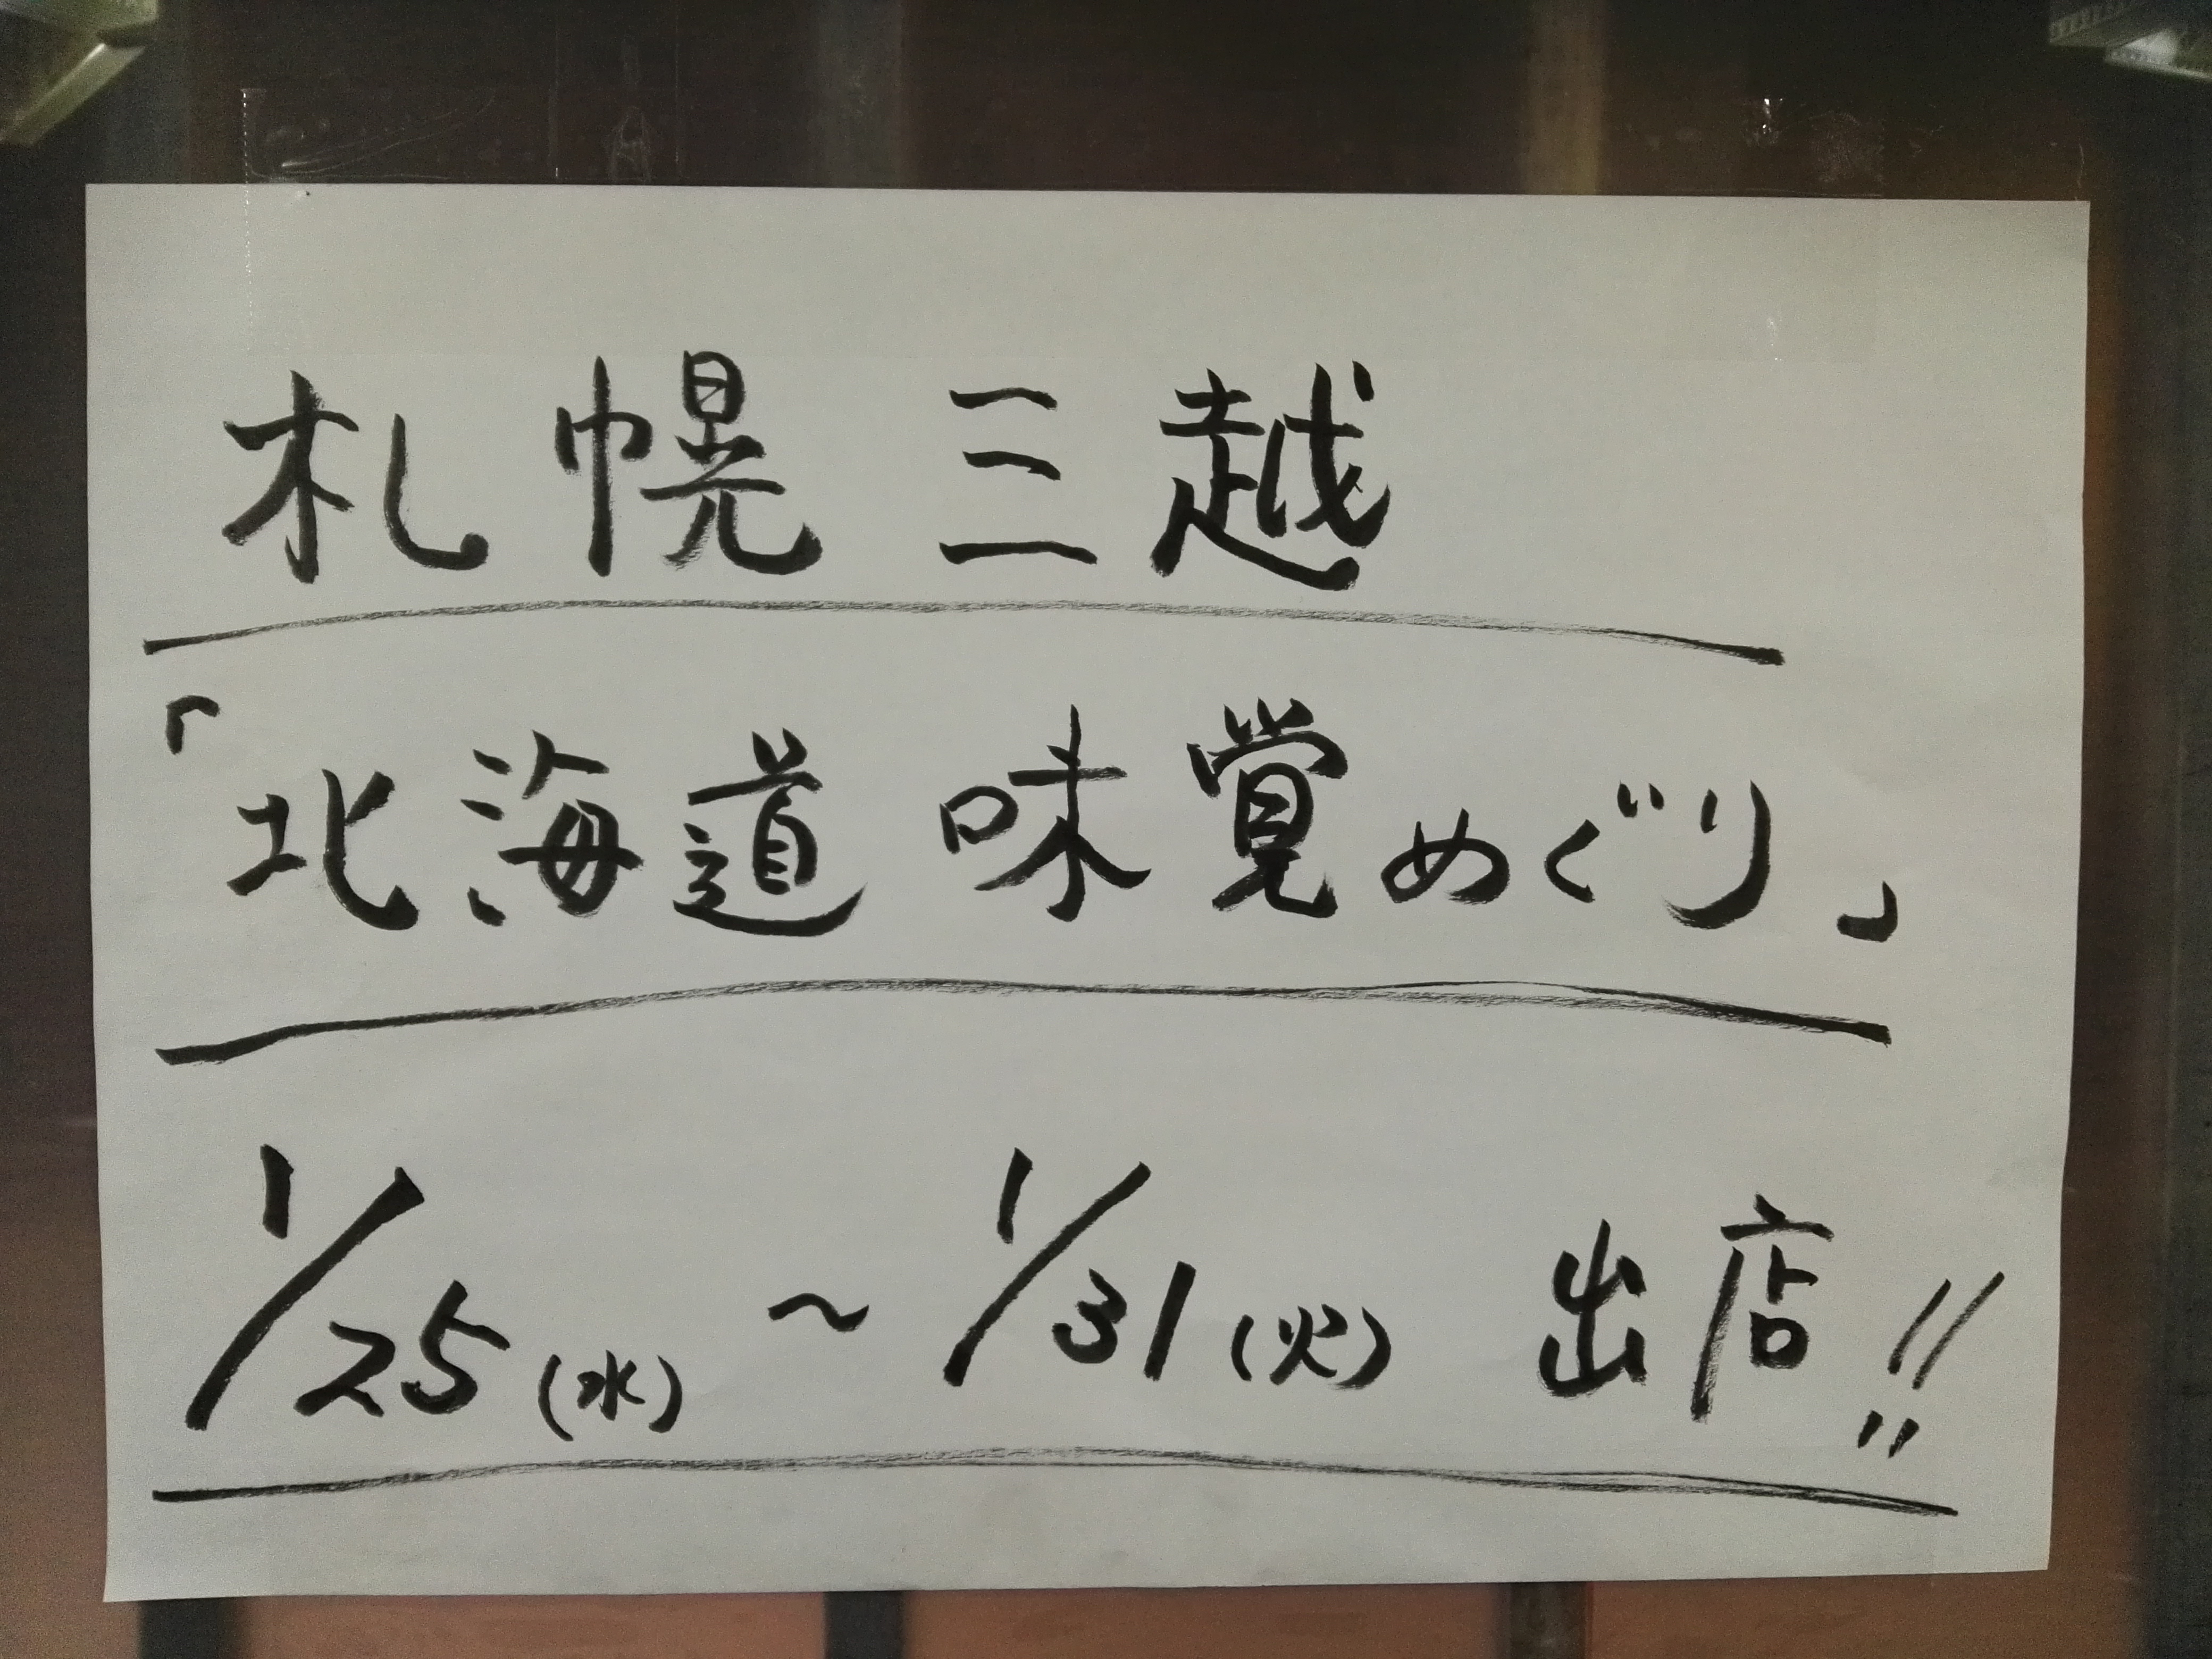 札幌三越
「北海道 味覚めぐり」
1/25(水) ~ 1/31(火) 出店!!